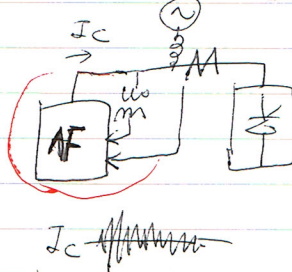 Ic
AF
Ic